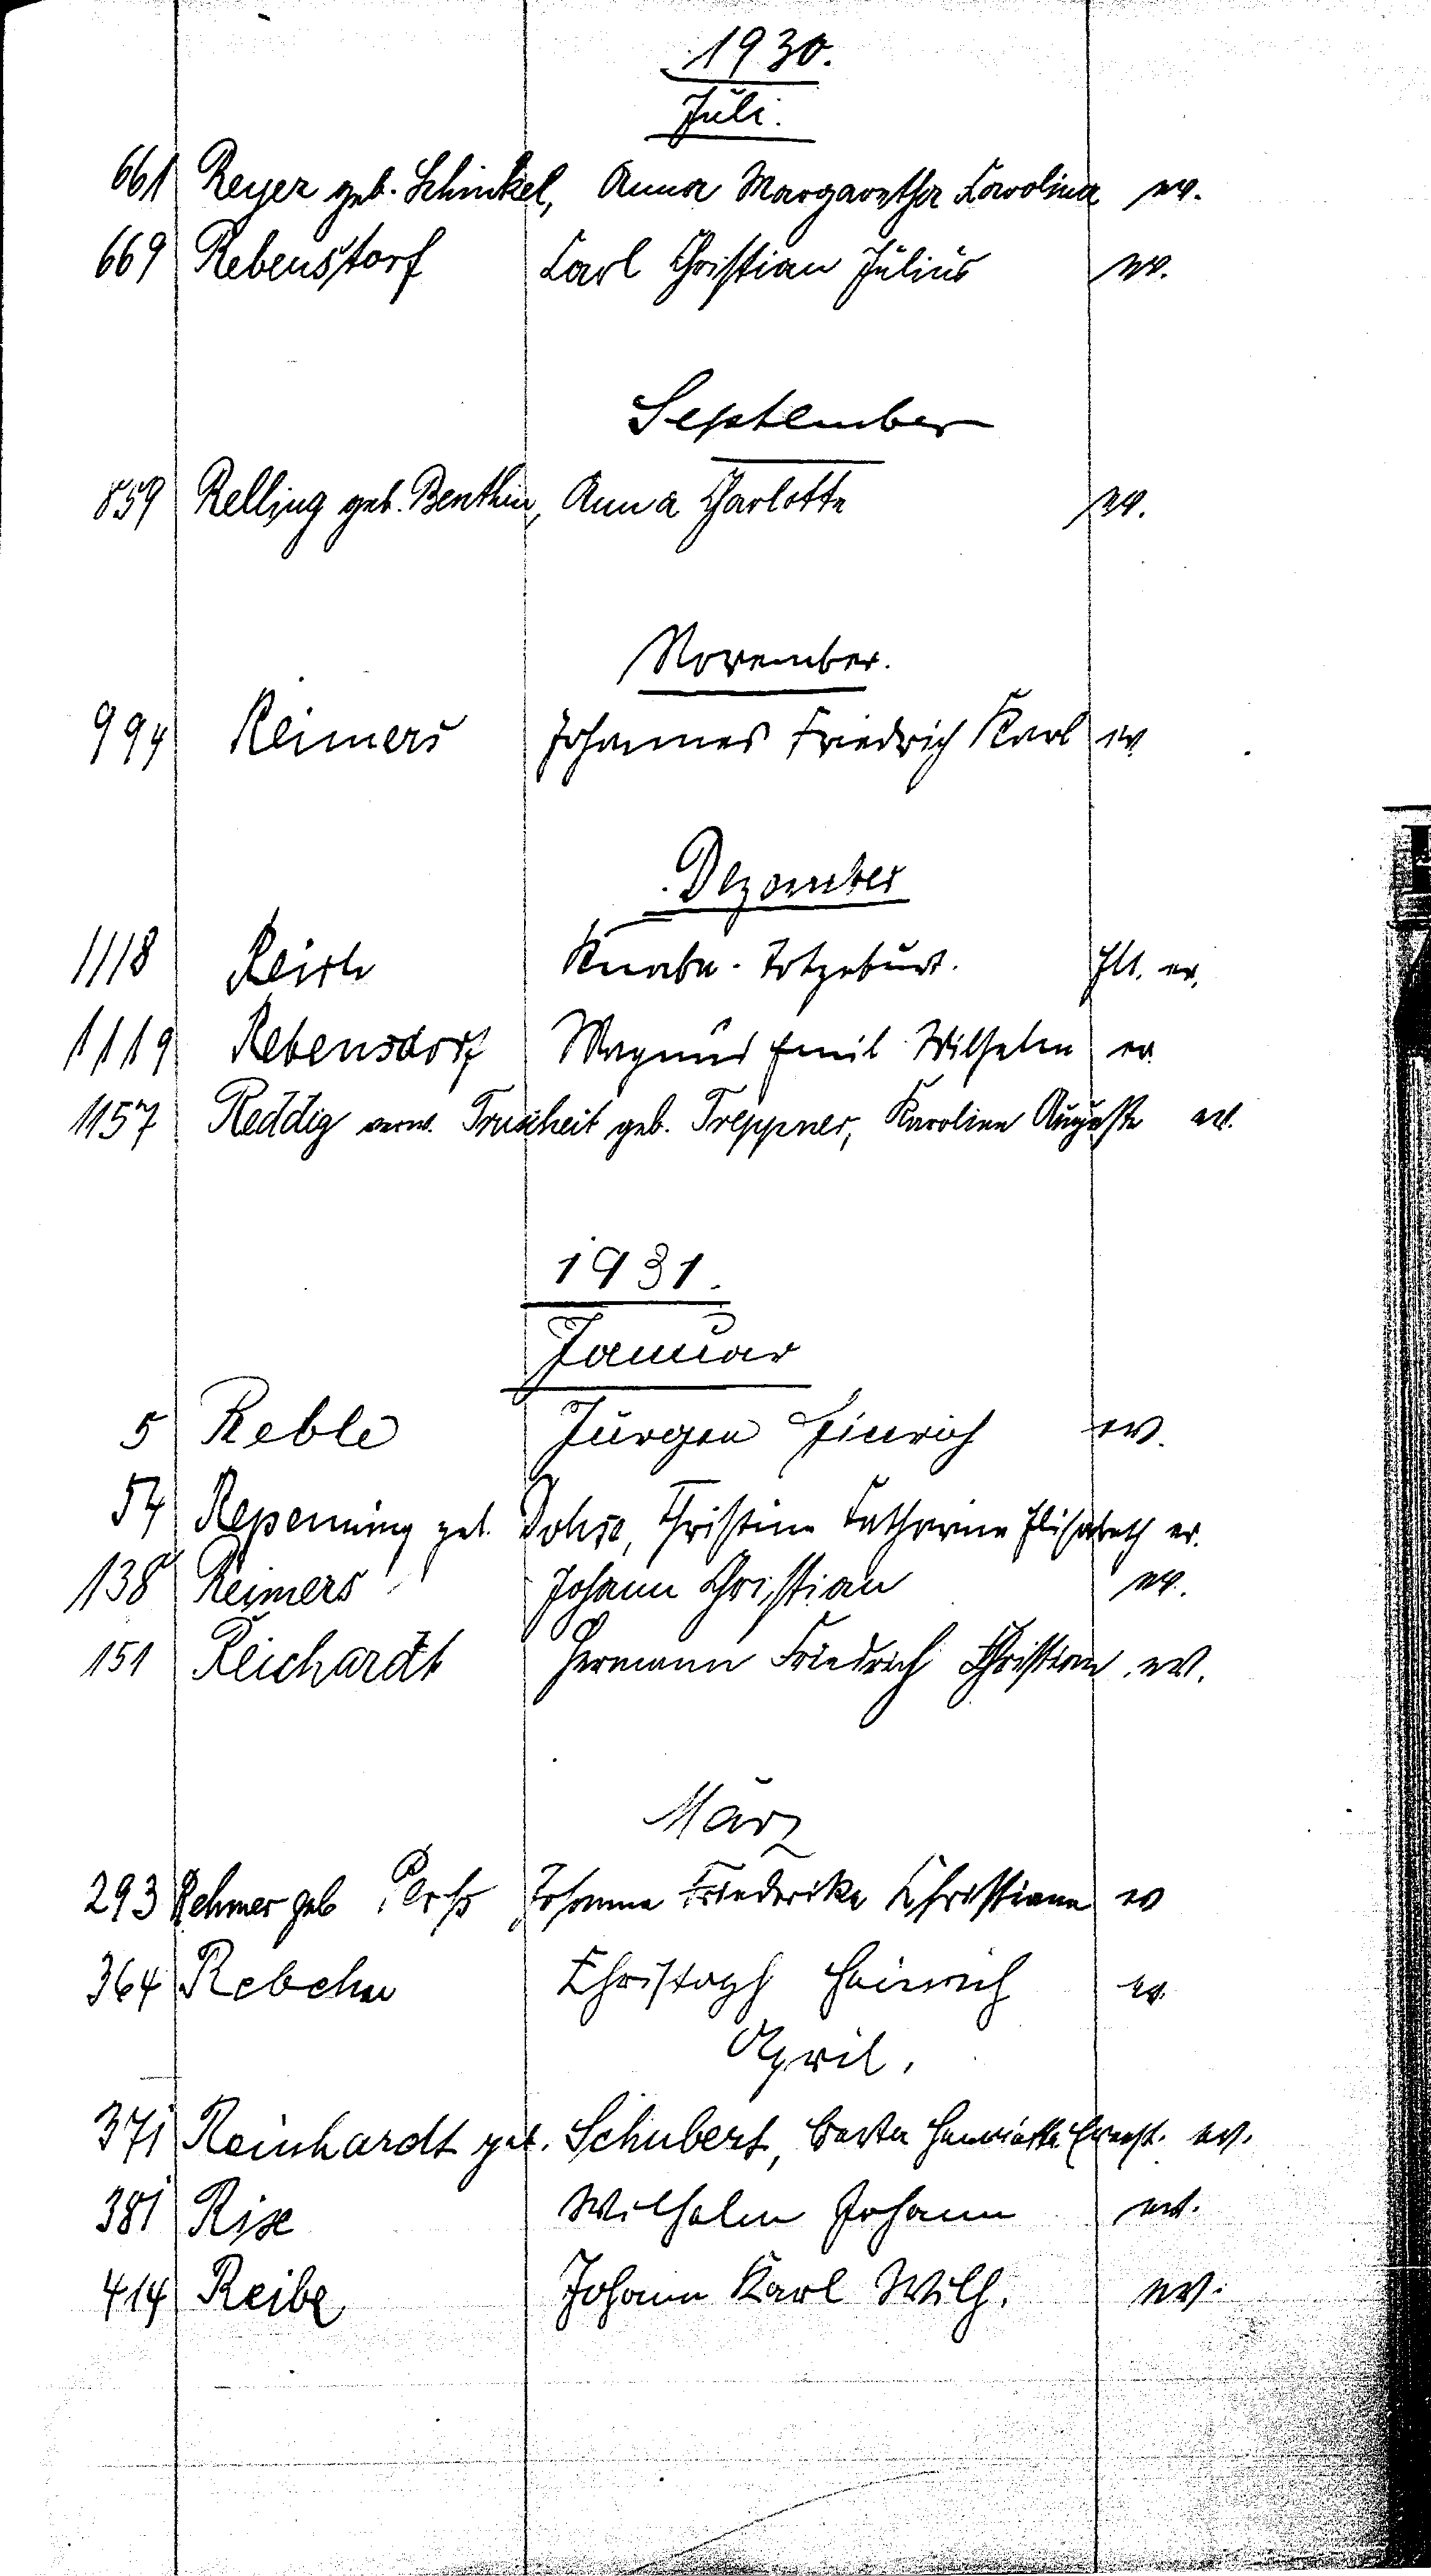 1930.
Juli.
661 Reyer geb. Schinkel, Anna Margaretha Carolina ev.
669 Rebenstorf Carl Christian Julius ev.
September
859 Relling geb. Benthin, Anna Charlotte ev.
November.
994 Reimers Johannes Friedrich Karl ev
Dezember
1118 Reich Knabe-Totgeburt. ev.
1119 Rebensdorf Magnus Emil Wilhelm ev.
1157 Reddig verw. Truscheit geb. Treppner, Karoline Auguste ev.
1931.
Januar
5 Reble Jürgen Hinrich ev.
54 Repenning geb. Dohse, Christine Catharine Elisabeth ev.
138 Reimers Johann Christian ev.
151 Reichardt Hermann Friedrich Christian ev.
März
293 Rehmer geb Johanna Friederike Christiane ev
364 Rebehn Christoph Heinrich ev.
April.
371 Reinhardt geb. Schubert, Berta Henriette Ernest. ev.
381 Rix Wilhelm Johann ev.
414 Reibe Johann Karl Wilh. ev.